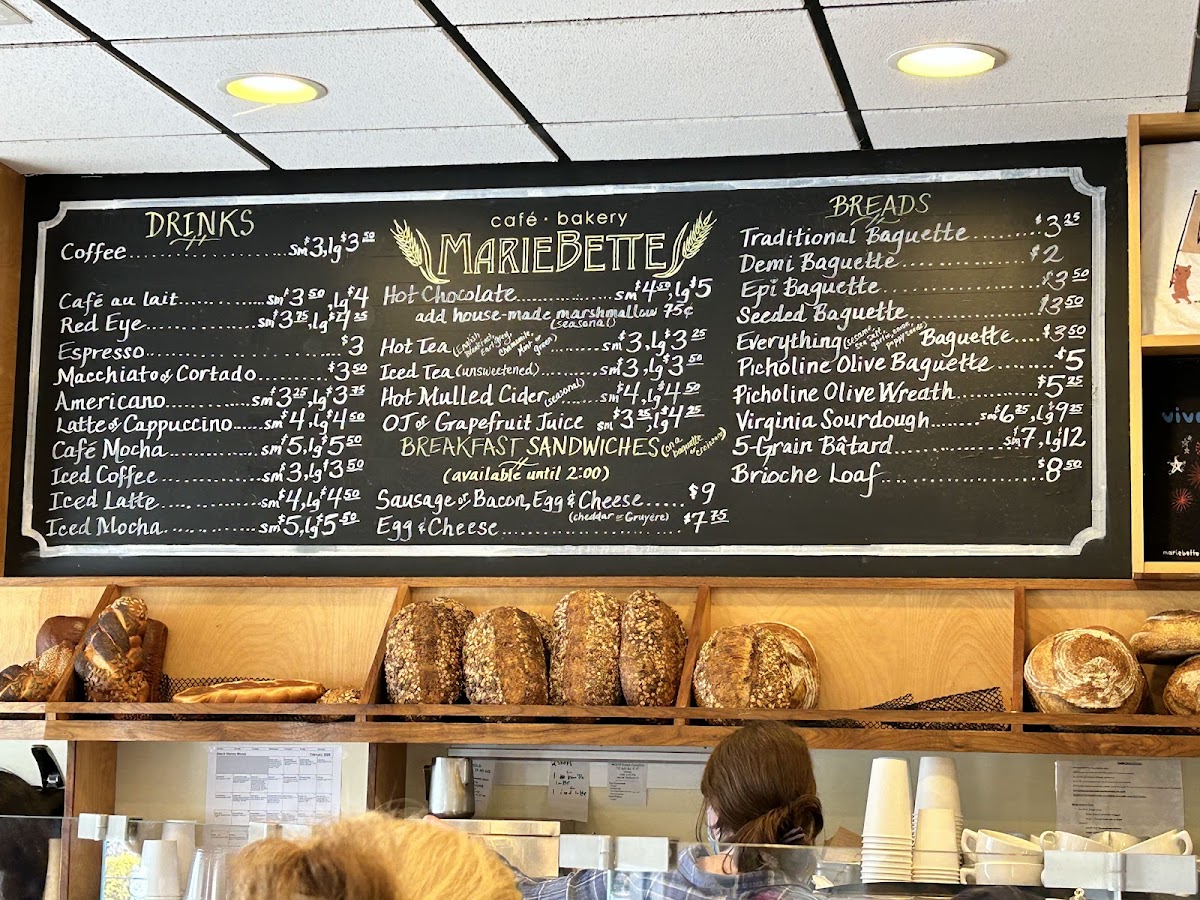 DRINKS
Coffee sm $3, lg $3.50
Café au lait sm $3.50, lg $4
Red Eye sm $3.75, lg $4.25
Espresso $3
Macchiato or Cortado $3.50
Americano sm $3.25, lg $3.75
Latte or Cappuccino sm $4, lg $4.50
Café Mocha sm $5, lg $5.50
Iced Coffee sm $3, lg $3.50
Iced Latte sm $4, lg $4.50
Iced Mocha sm $5, lg $5.50
café · bakery
MARIEBETTE
Hot Chocolate sm $4.50, lg $5
add house-made marshmallow 75¢
(seasonal)
Hot Tea sm $3, lg $3.25
Iced Tea (unsweetened) sm $3, lg $3.50
Hot Mulled Cider (seasonal) sm $4, lg $4.50
OJ or Grapefruit Juice sm $3.25, lg $4.25
BREAKFAST SANDWICHES (on a baguette or croissant)
(available until 2:00)
Sausage or Bacon, Egg & Cheese $9
(cheddar or Gruyére)
Egg & Cheese $7.75
BREADS
Traditional Baguette $3.25
Demi Baguette $2
Epi Baguette $3.50
Seeded Baguette $3.50
Everything Baguette $3.50
Picholine Olive Baguette $5
Picholine Olive Wreath $5.25
Virginia Sourdough sm $6.25, lg $9.25
5-Grain Bâtard sm $7, lg $12
Brioche Loaf $8.50
mariebette